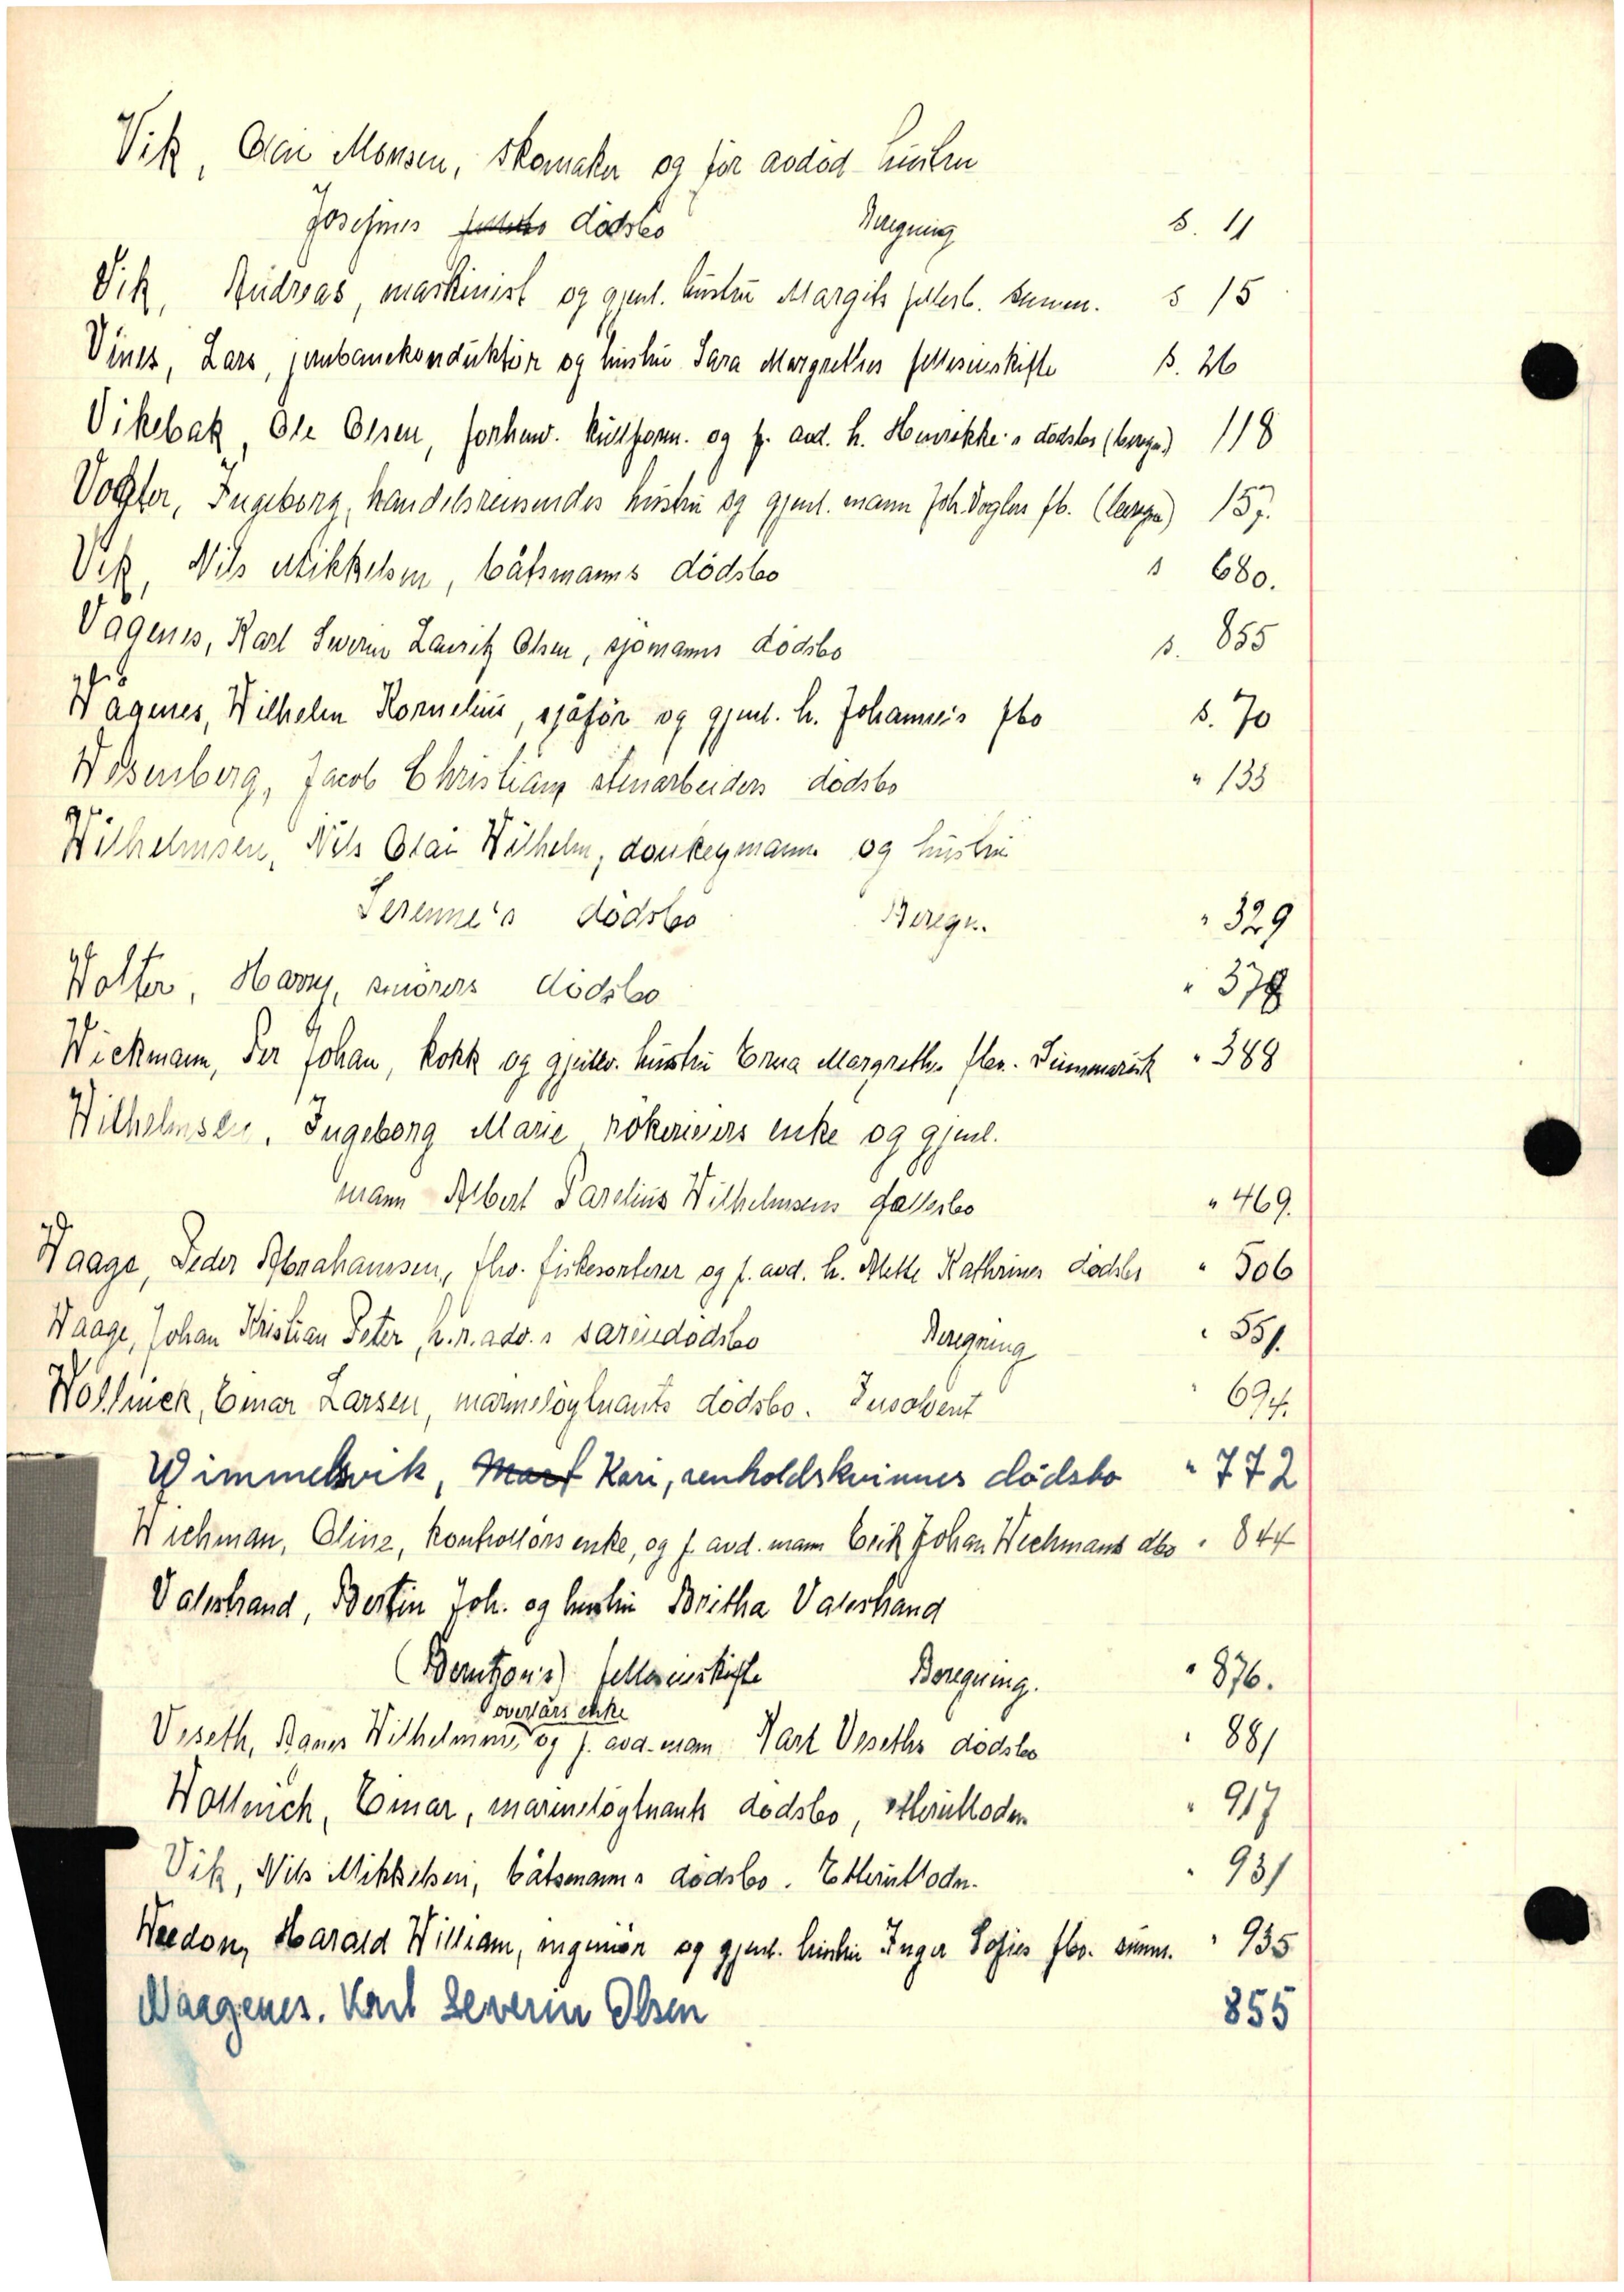 Vik, Olai Monsen, skomaker og før avdød hustru
Josefines dødsbo Beregning s. 11
Vik, Andreas, maskinist og gjenl. hustru Margits fellesb. summ. s 15
Vines, Lars, jernbanekonduktør og hustru Sara Margrethes felleseieskifte s. 26
Vikebak, Ole Olsen, forhenv. kullform. og f. avd. h. Henrikke's dødsbo (beregn) 118
Vogler, Ingeborg, handelsreisendes hustru og gjenl. mann Joh. Voglers fb. (beregn) 157.
Vik, Nils Mikkelsen, båtsmanns dødsbo s 680.
Vagenes, Karl Severin Lauritz Olsen, sjømanns dødsbo s. 855
Wagenes, Wilhelm Kornelius, sjåfør og gjenl. h. Johannes's fbo s. 70
Wesenberg, Jacob Christians stenarbeiders dødsbo " 133
Wilhelmsen, Nils Olai Wilhelm, donkeymann og hustru
Serenne's dødsbo Beregn. " 329
Wolter, Harry, smörers dødsbo " 378
Wickmann, Per Johan, kokk og gjenlev. hustru Erna Margrethe fbo. Summarisk " 388
Wilhelmsen, Ingeborg Marie rökerieiers enke og gjenl.
mann Albert Parelius Wilhelmsens fellesbo " 469.
Waage, Peder Abrahamsen, fhv. fiskesorterer og f. avd. h. Mette Kathrines dødsbo " 506
Waage, Johan Kristian Peter, h.r.adv.s særeiedødsbo Beregning " 551.
Wollnick, Einar Larsen, marineløytnants dødsbo. Insolvent " 694.
Wimmelsvik, Kari, renholdskvinnes dødsbo " 772
Wichman, Oline, kontrollørs enke, og f. avd. mann Erik Johan Wichmans dbo " 844
Valestrand, Bertin Joh. og hustru Britha Valestrand
(Berntzon's) felleseieskifte Beregning. " 876.
overlærs enke
Veseth, Wilhelmine, og f. avd. mann Karl Veseths dødsbo " 881
Wollnick, Einar, marineløytnants dødsbo, Etterutlodn " 917
Vik, Nils Mikkelsen, båtsmanns dødsbo. Etterutlodn. " 931
Weedon, Harald William, ingeniør og gjenl. hustru Inger Sofies fbo. summ. " 935
Waagenes. Karl Severin Olsen 855